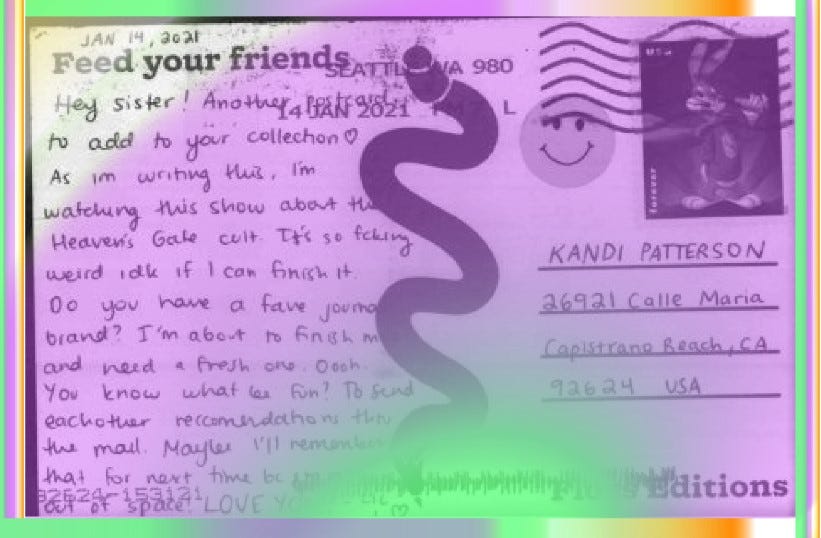 JAN 14, 2021
Feed your friends
SEATTLE WA 980
14 JAN 2021 PM L
USA
forever
Hey sister! Another postcard
to add to your collection♡
As im writing this, I'm
watching this show about the
Heaven's Gate cult. It's so fcking
weird idk if I can finish it.
Do you have a fave journal
brand? I'm about to finish
and need a fresh one. Oooh.
You know what be fun? To send
eachother reccomendations thru
the mail. Maybe I'll remember
that for next time bc
out of space! LOVE YOU
KANDI PATTERSON
26921 Calle Maria
Capistrano Beach, CA
92624 USA
92624-153121
Editions